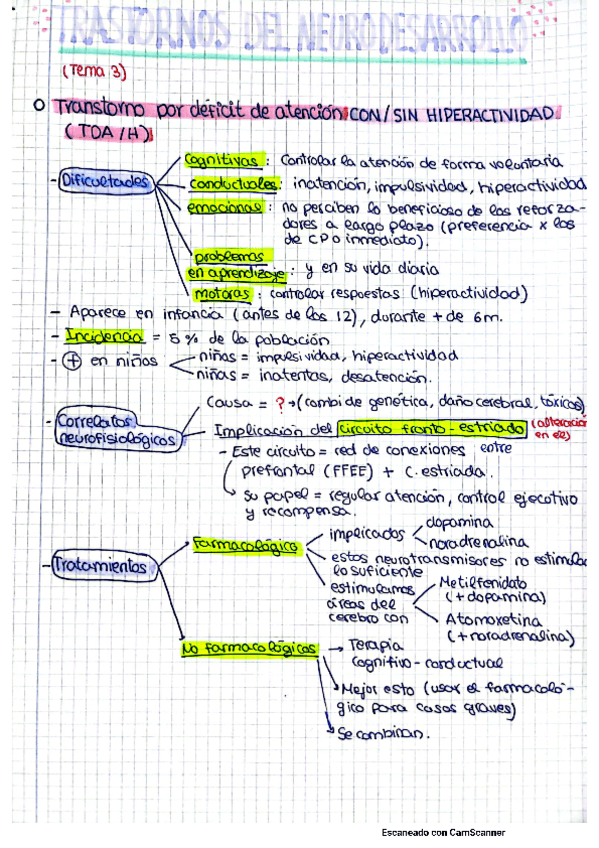 TRASTORNOS DEL NEURODESARROLLO
(Tema 3)
O Transtorno por déficit de atención CON/SIN HIPERACTIVIDAD
(TDA/H)
- Dificultades
Cognitivas: Controlar la atención de forma voluntaria
conductuales: inatención, impulsividad, hiperactividad
emocionas: no perciben lo beneficioso de los reforza-
dores a largo plazo (preferencia x los
de CP o inmediato).
problemas
en aprendizaje: y en su vida diaria
motoras: controlar respuestas (hiperactividad)
- Aparece en infancia (antes de los 12), durante + de 6m.
- Incidencia = 5% de la población
- + en niños
niños = impulsividad, hiperactividad
niñas = inatentas, desatención.
- Correlatos
neurofisiológicos
Causa = ? → (combi de genética, daño cerebral, tóxicos)
Implicación del circuito fronto-estriado (alteración
en él)
- Este circuito = red de conexiones entre
prefrontal (FFEE) + C. estriada.
su papel = regular atención, control ejecutivo
y recompensa.
- Tratamientos
Farmacológico
implicados
dopamina
noradrenalina
estos neurotransmisores no estimula
lo suficiente
estimulamos
áreas del
cerebro con
Metilfenidato
(+dopamina)
Atomoxetina
(+noradrenalina)
No farmacológicos → Terapia
Cognitivo-conductual
Mejor esto (usar el farmacoló-
gico para casos graves)
Se combinan.
Escaneado con CamScanner